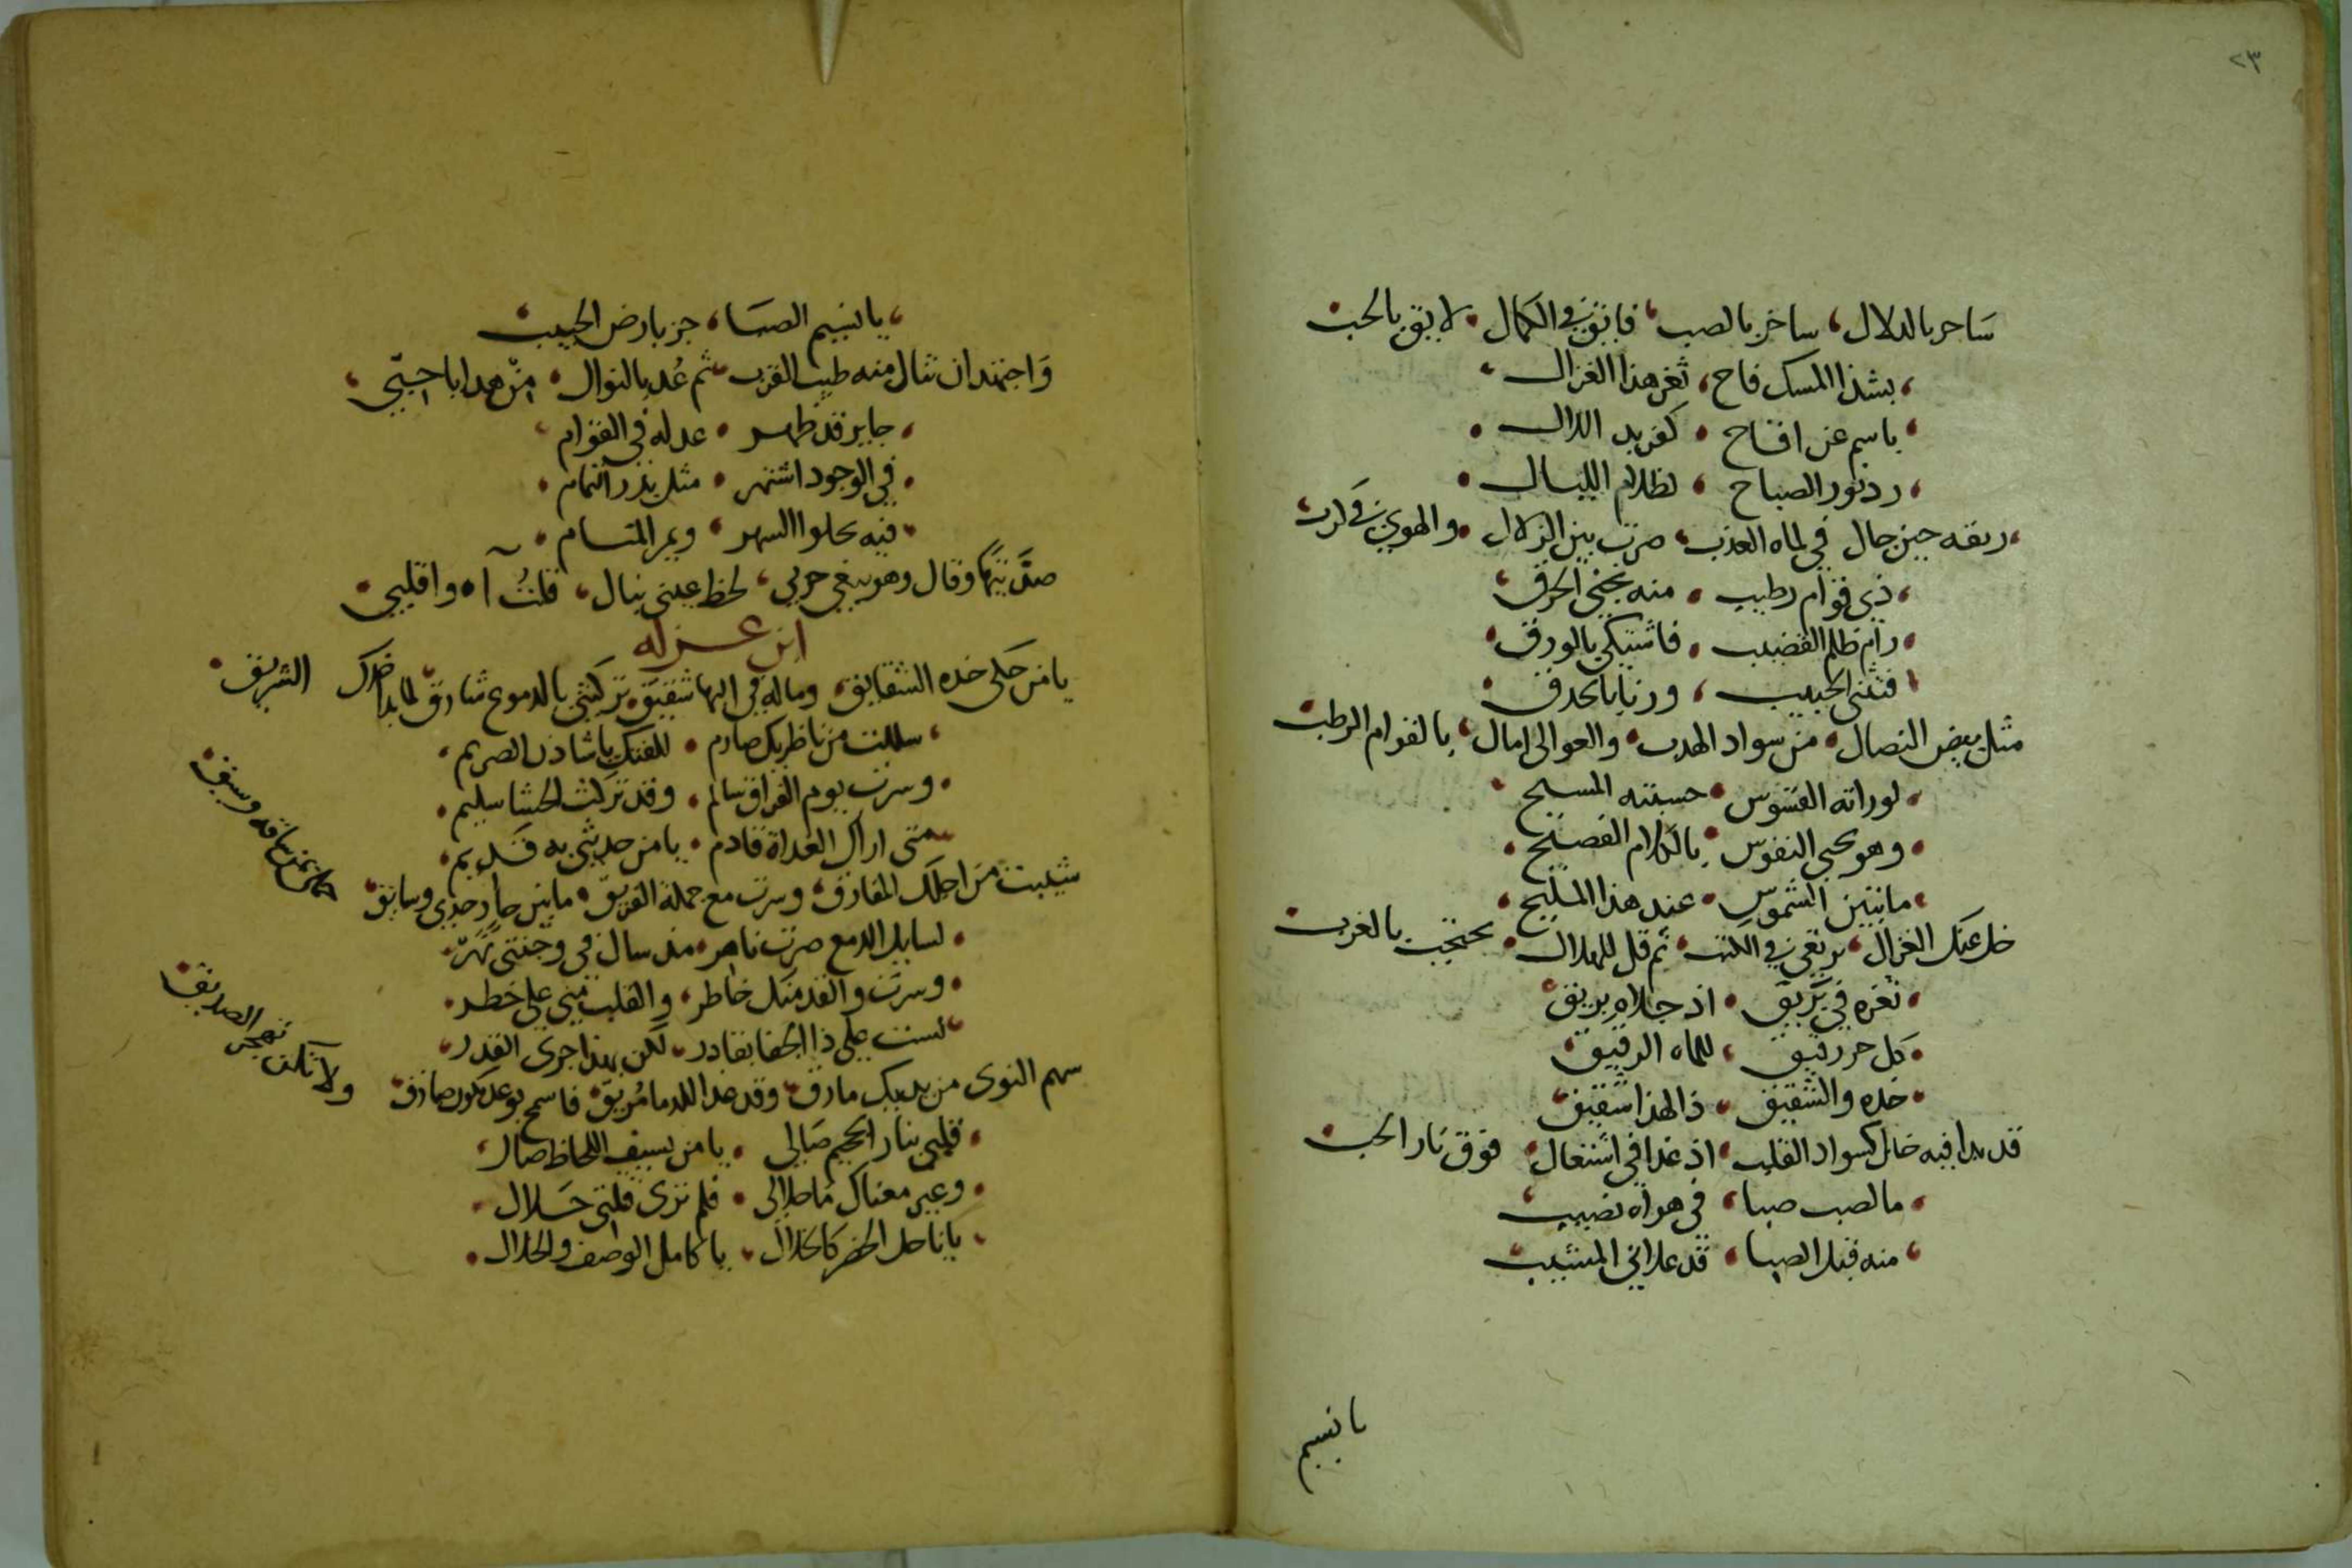 ٢٣
ساحر بالدلال، ساخر بالصب، فايق في الكمال، لايق بالحب
بشذا المسك فاح، ثغر هذا الغزال
باسم عن اقاح، كفريد اللال
رد نور الصباح، لظلام الليال
ريقه حين حال في لماه العذب، صرت بين الزلال، والهوى في كرب
ذي قوام رطيب، منه نجني الحرق
رام ظلم القضيب، فاشتكى بالورق
فتثنى الحبيب، ورنا بالحدق
مثل بيض النصال، من سواد الهدب، والعوالي امال، بالقوام الرطب
لوراته القسوس، حسبته المسيح
وهو يحيى النفوس، بالكلام الفصيح
ما تبين الشموس، عند هذا المليح
خل عنك الغزال، يرتعي في الكثب، ثم قل للهلال، يحتجب بالغرب
ثغره في بريق، اذ جلاه بريق
كل حر رقيق، للماه الرقيق
خده والشقيق، ذا لهذا شقيق
قد بدا فيه خال كسواد القلب، اذ غدا في اشتعال، فوق نار الحب
ما لصب صبا، في هواه نصيب
منه قبل الصبا، قد علاني المشيب
يا نسيم
يا نسيم الصبا، جز بارض الحبيب
واجتهد ان تنال منه طيب القرب، ثم عد بالنوال، من هدايا حبي
جاير قد ظهر، عدله في القوام
في الوجود اشتهر، مثل بدر التمام
فيه يحلوا السهر، ويمر المنام
صد تيها وقال وهو يبغي حربي، لحظ عيني نبال، قلت آه واقلبي
ابن عزله
يا من حكى خده الشقايق، وماله في البها شقيق، تركتني بالدموع شارق، لما بدا خدك الشريق
سللت من ناظريك صارم، للفتك يا شاذن الصريم
وسرت يوم الفراق سالم، وقد تركت الحشا سليم
متى اراك الغداة قادم، يا من حديثي به قديم
شيبت من اجلك المفارق، وسرت مع جملة الفريق، ما بين حادي وسايق
لسايل الدمع صرت ناهر، مذ سال في وجنتي نهر
وسرت والقد منك خاطر، والقلب مني على خطر
لست على ذا الجفا بقادر، لكن بهذا جرى القدر
سهم النوى من يديك مارق، وقد غدا للدما مريق، فاسمح بوعد يكون صادق، ولا تكن تهجر الصديق
قلبي بنار الجحيم صالي، يا من بسيف اللحاظ صال
وغير معناك ما حلالي، فلم ترى قتلتي حلال
يا ناحل الخصر كالخلال، يا كامل الوصف والخلال